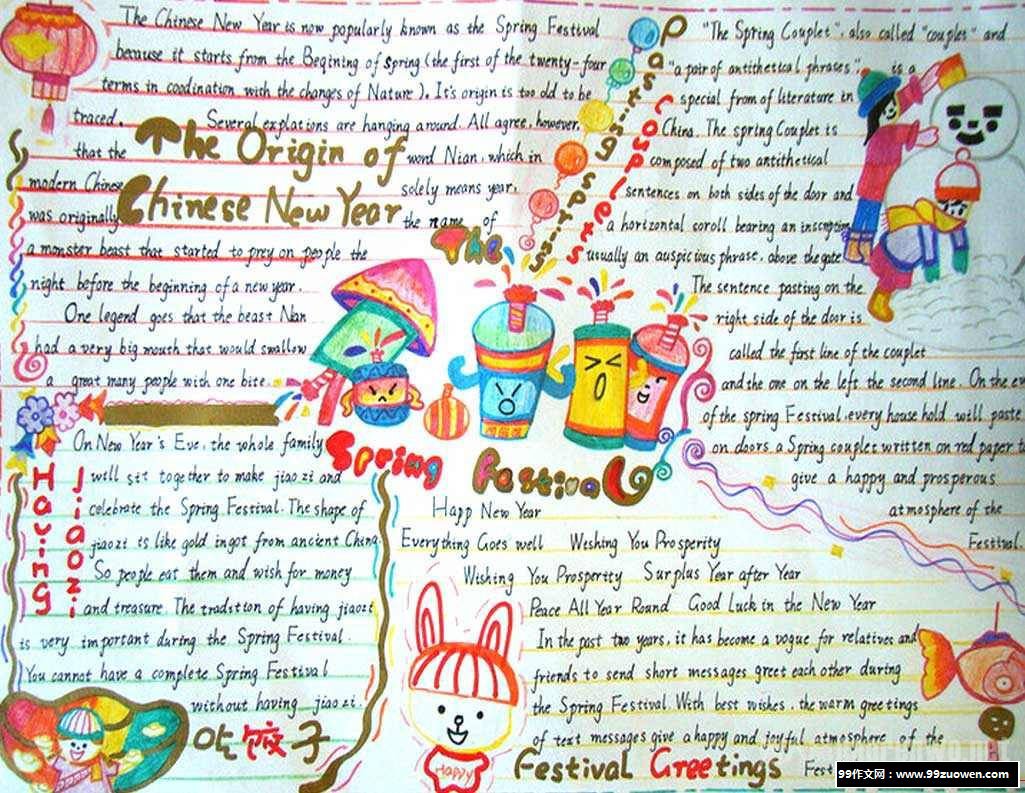 The Chinese New Year is now popularly known as the Spring Festival
because it starts from the Begining of Spring (the first of the twenty-four
terms in coodination with the changes of Nature). It's origin is too old to be
traced. Several explations are hanging around. All agree, however,
that the word Nian, which in
modern Chinese solely means year,
was originally the name of
a monster beast that started to prey on people the
night before the beginning of a new year.
One legend goes that the beast Nian
had a very big mouth that would swallow
a great many people with one bite.
The Origin of
Chinese New Year
Pasting Spring
Couplets
"The Spring Couplet", also called "couplet" and
"a pair of antithetical phrases", is a
special from of literature in
China. The spring Couplet is
composed of two antithetical
sentences on both sides of the door and
a horizontal scroll bearing an inscription
usually an auspicious phrase, above the gate
The sentence pasting on the
right side of the door is
called the first line of the couplet
and the one on the left the second line. On the eve
of the spring Festival, every house hold will paste
on doors a Spring couplet written on red paper t
give a happy and prosperous
atmosphere of the
Festival.
The
Spring Festival
Having
Jiaozi
On New Year's Eve, the whole family
will sit together to make jiao zi and
celebrate the Spring Festival. The shape of
jiaozi is like gold ingot from ancient China.
So people eat them and wish for money
and treasure. The tradition of having jiaozi
is very important during the Spring Festival.
You cannot have a complete Spring Festival
without having jiaozi.
吃饺子
Happ New Year
Everything Goes well Wishing You Prosperity
Wishing You Prosperity Surplus Year after Year
Peace All Year Round Good Luck in the New Year
In the past two years, it has become a vogue for relatives and
friends to send short messages greet each other during
the Spring Festival. With best wishes, the warm greetings
of text messages give a happy and joyful atmosphere of the
Fest
Festival Greetings
Happy
99作文网：www.99zuowen.com